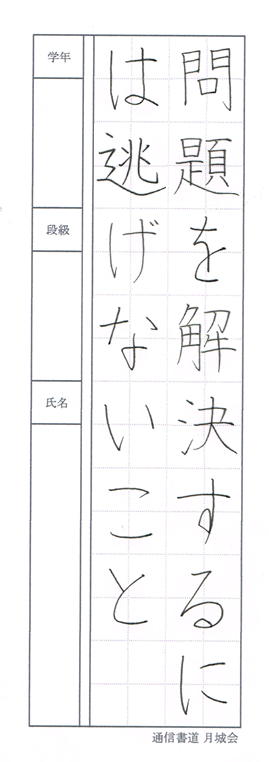 問題を解決するに
は逃げないこと
学年
段級
氏名
通信書道 月城会